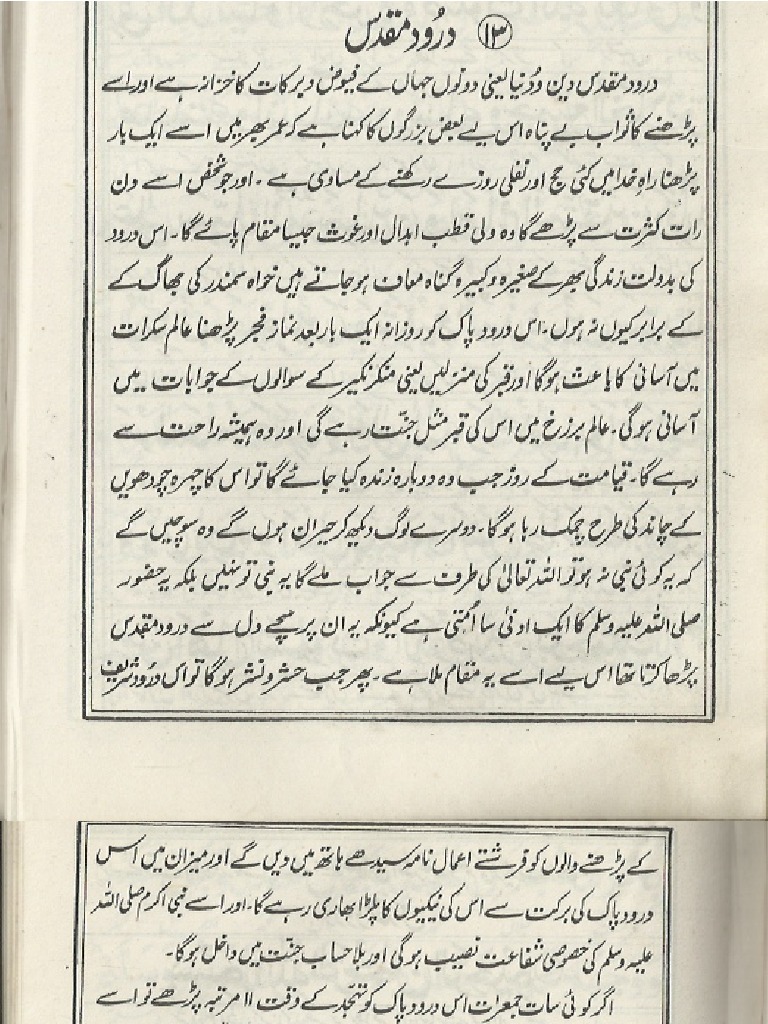 ۱۳ درُود مقدس
درود مقدس دین و دُنیا یعنی دونوں جہاں کے فیوض و برکات کا خزانہ ہے اور اسے
پڑھنے کا ثواب بے پناہ اس لیے بعض بزرگوں کا کہنا ہے کہ عمر بھر میں اسے ایک بار
پڑھنا راہِ خدا میں کئی حج اور نفلی روزے رکھنے کے مساوی ہے ۔ اور جو شخص اسے دن
رات کثرت سے پڑھے گا وہ ولی قطب ابدال اور غوث جیسا مقام پائے گا۔ اس درود
کی بدولت زندگی بھر کے صغیرہ و کبیرہ گناہ معاف ہو جاتے ہیں خواہ سمندر کی جھاگ کے
کے برابر کیوں نہ ہوں۔ اس درود پاک کو روزانہ ایک بار بعد نماز فجر پڑھنا عالم سکرات
میں آسانی کا باعث ہوگا اور قبر کی منزلیں یعنی منکر نکیر کے سوالوں کے جوابات میں
آسانی ہوگی۔ عالم برزخ میں اس کی قبر مثل جنّت رہے گی اور وہ ہمیشہ راحت سے
رہے گا۔ قیامت کے روز جب وہ دوبارہ زندہ کیا جائے گا تو اس کا چہرہ چودھویں
کے چاند کی طرح چمک رہا ہوگا۔ دوسرے لوگ دیکھ کر حیران ہوں گے وہ سوچیں گے
کہ یہ کوئی نبی نہ ہو تو اللہ تعالیٰ کی طرف سے جواب ملے گا یہ نبی تو نہیں بلکہ یہ حضور
صلی اللہ علیہ وسلم کا ایک ادنیٰ سا اُمتی ہے کیونکہ یہ ان پر سچے دل سے درود مقدس
پڑھا کرتا تھا اس لیے اسے یہ مقام ملا ہے ۔ پھر جب حشر و نشر ہوگا تو اس درُود شریف
کے پڑھنے والوں کو فرشتے اعمال نامہ سیدھے ہاتھ میں دیں گے اور میزان میں اس
درود پاک کی برکت سے اس کی نیکیوں کا پلڑا بھاری رہے گا۔ اور اسے نبی اکرم صلی اللہ
علیہ وسلم کی خصوصی شفاعت نصیب ہوگی اور بلا حساب جنّت میں داخل ہوگا۔
اگر کوئی سات جمعرات اس درود پاک کو تہجّد کے وقت ۱۱ مرتبہ پڑھے تو اسے